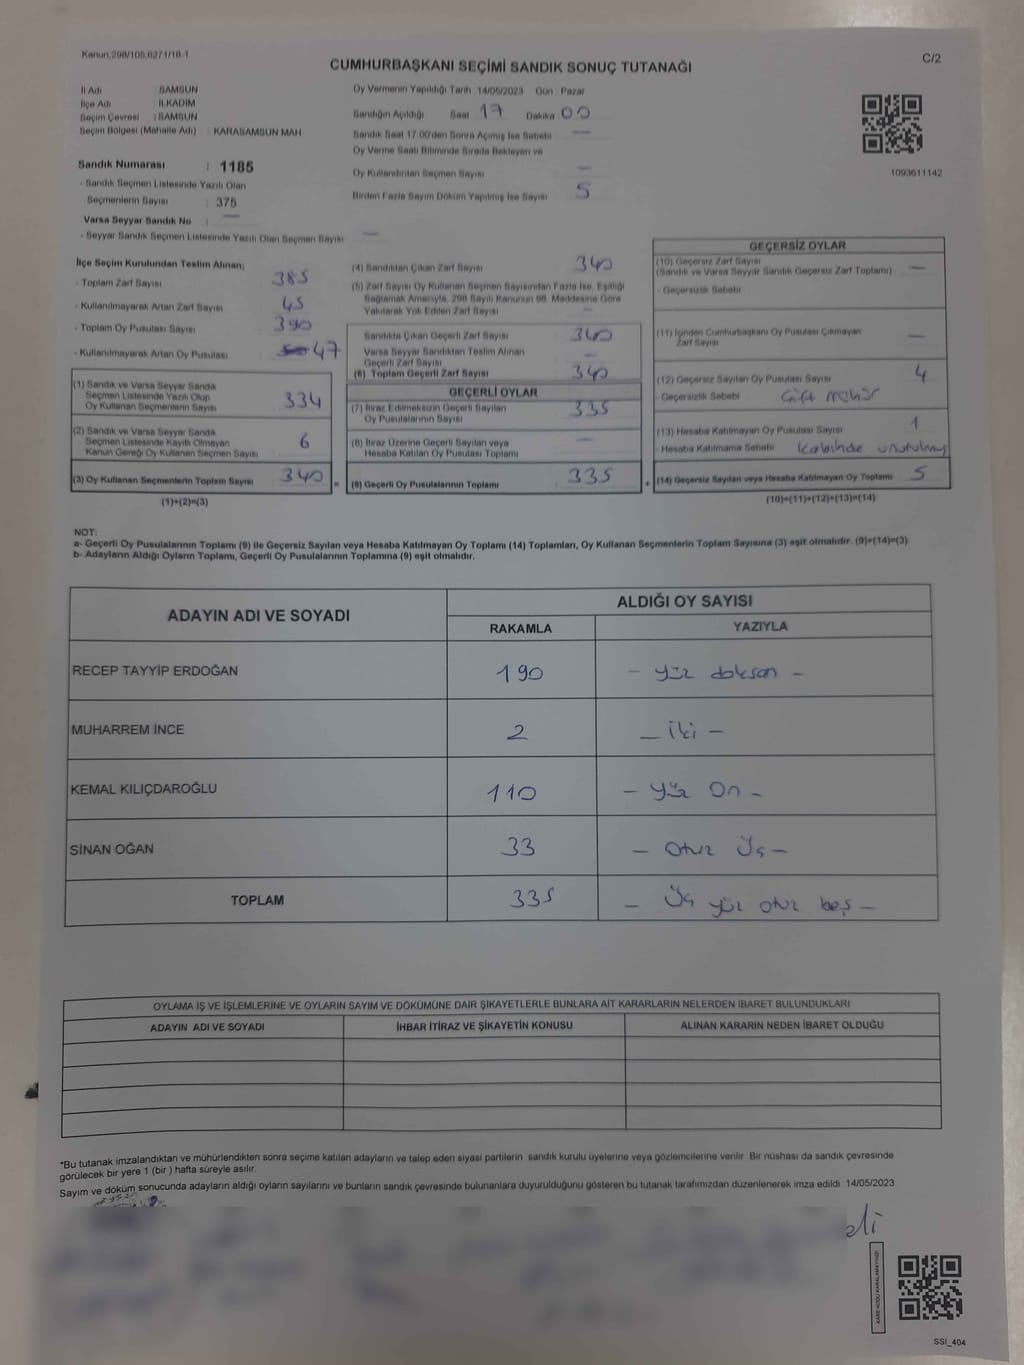 Kanun:298/105,6271/18-1
C/2
CUMHURBAŞKANI SEÇİMİ SANDIK SONUÇ TUTANAĞI
İl Adı : SAMSUN
İlçe Adı : İLKADIM
Seçim Çevresi : SAMSUN
Seçim Bölgesi (Mahalle Adı) : KARASAMSUN MAH
Sandık Numarası : 1185
- Sandık Seçmen Listesinde Yazılı Olan
Seçmenlerin Sayısı : 375
Varsa Seyyar Sandık No : —
- Seyyar Sandık Seçmen Listesinde Yazılı Olan Seçmen Sayısı —
Oy Vermenin Yapıldığı Tarih : 14/05/2023 Gün : Pazar
Sandığın Açıldığı Saat 17 Dakika 00
Sandık Saat 17:00'den Sonra Açılmış İse Sebebi —
Oy Verme Saati Bitiminde Sırada Bekleyen ve
Oy Kullandırılan Seçmen Sayısı —
Birden Fazla Sayım Döküm Yapılmış İse Sayısı 5
1093611142
İlçe Seçim Kurulundan Teslim Alınan;
- Toplam Zarf Sayısı 385
- Kullanılmayarak Artan Zarf Sayısı 45
- Toplam Oy Pusulası Sayısı 390
- Kullanılmayarak Artan Oy Pusulası 47
(1) Sandık ve Varsa Seyyar Sandık
Seçmen Listesinde Yazılı Olup
Oy Kullanan Seçmenlerin Sayısı 334
(2) Sandık ve Varsa Seyyar Sandık
Seçmen Listesinde Kayıtlı Olmayan
Kanun Gereği Oy Kullanan Seçmen Sayısı 6
(3) Oy Kullanan Seçmenlerin Toplam Sayısı 340
(1)+(2)=(3)
(4) Sandıktan Çıkan Zarf Sayısı 340
(5) Zarf Sayısı Oy Kullanan Seçmen Sayısından Fazla İse, Eşitliği
Sağlamak Amacıyla, 298 Sayılı Kanunun 98. Maddesine Göre
Yakılarak Yok Edilen Zarf Sayısı —
Sandıkta Çıkan Geçerli Zarf Sayısı 340
Varsa Seyyar Sandıktan Teslim Alınan
Geçerli Zarf Sayısı —
(6) Toplam Geçerli Zarf Sayısı 340
GEÇERLİ OYLAR
(7) İtiraz Edilmeksizin Geçerli Sayılan
Oy Pusulalarının Sayısı 335
(8) İtiraz Üzerine Geçerli Sayılan veya
Hesaba Katılan Oy Pusulası Toplamı —
= (9) Geçerli Oy Pusulalarının Toplamı 335
GEÇERSİZ OYLAR
(10) Geçersiz Zarf Sayısı
(Sandık ve Varsa Seyyar Sandık Geçersiz Zarf Toplamı) —
- Geçersizlik Sebebi
(11) İçinden Cumhurbaşkanı Oy Pusulası Çıkmayan
Zarf Sayısı —
(12) Geçersiz Sayılan Oy Pusulası Sayısı 4
- Geçersizlik Sebebi Çift mühür
(13) Hesaba Katılmayan Oy Pusulası Sayısı 1
- Hesaba Katılmama Sebebi Kabinde unutulmuş
+ (14) Geçersiz Sayılan veya Hesaba Katılmayan Oy Toplamı 5
(10)+(11)+(12)+(13)=(14)
NOT:
a- Geçerli Oy Pusulalarının Toplamı (9) ile Geçersiz Sayılan veya Hesaba Katılmayan Oy Toplamı (14) Toplamları, Oy Kullanan Seçmenlerin Toplam Sayısına (3) eşit olmalıdır. (9)+(14)=(3)
b- Adayların Aldığı Oyların Toplamı, Geçerli Oy Pusulalarının Toplamına (9) eşit olmalıdır.
ADAYIN ADI VE SOYADI
ALDIĞI OY SAYISI
RAKAMLA YAZIYLA
RECEP TAYYİP ERDOĞAN 190 - yüz doksan -
MUHARREM İNCE 2 - iki -
KEMAL KILIÇDAROĞLU 110 - yüz on -
SİNAN OĞAN 33 - Otuz Üç -
TOPLAM 335 - Üç yüz otuz beş -
OYLAMA İŞ VE İŞLEMLERİNE VE OYLARIN SAYIM VE DÖKÜMÜNE DAİR ŞİKAYETLERLE BUNLARA AİT KARARLARIN NELERDEN İBARET BULUNDUKLARI
ADAYIN ADI VE SOYADI İHBAR İTİRAZ VE ŞİKAYETİN KONUSU ALINAN KARARIN NEDEN İBARET OLDUĞU
*Bu tutanak imzalandıktan ve mühürlendikten sonra seçime katılan adayların ve talep eden siyasi partilerin sandık kurulu üyelerine veya gözlemcilerine verilir. Bir nüshası da sandık çevresinde
görülecek bir yere 1 (bir ) hafta süreyle asılır.
Sayım ve döküm sonucunda adayların aldığı oyların sayılarını ve bunların sandık çevresinde bulunanlara duyurulduğunu gösteren bu tutanak tarafımızdan düzenlenerek imza edildi. 14/05/2023
KARE KODU KARALAMAYINIZ!
SSI_404